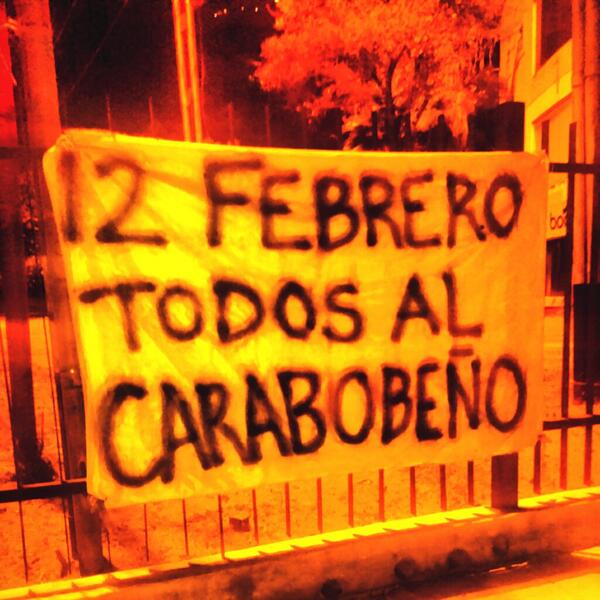 12 FEBRERO
TODOS AL
CARABOBEÑO